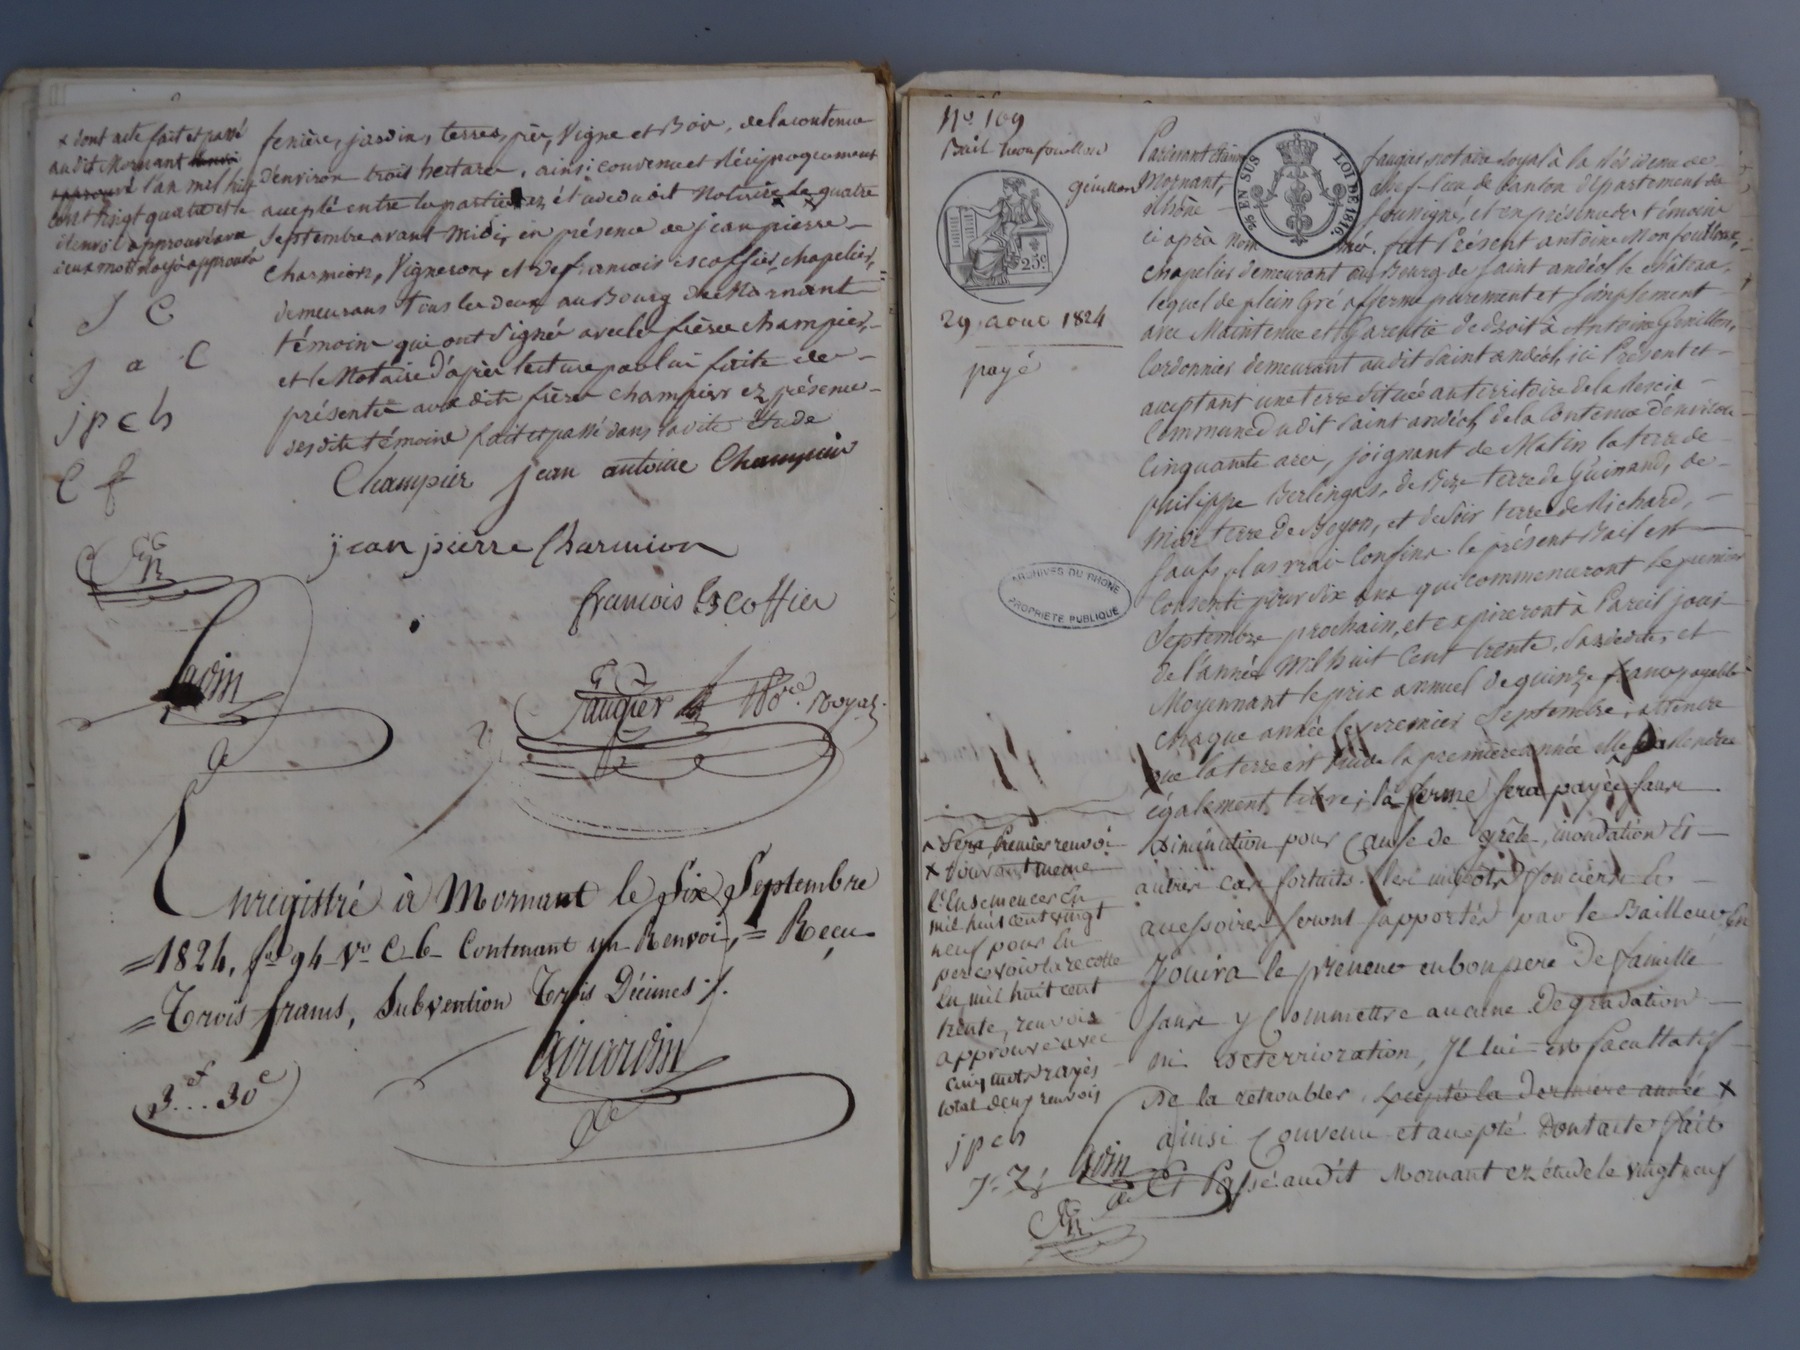 x dont acte fait et passé
audit Mornant
l'an mil huit
cent vingt quatre et le
renvoi approuvé avec
deux mots rayés approuvé
J C
j a C
jpch
C f
fenière, jardin, terres, pré, Vigne et Bois, de la contenue
d'environ trois hectares, ainsi convenu et réciproquement
accepté entre les parties, et Notaire le quatre
Septembre avant midi, en présence de jean pierre
Charmion, Vigneron, et de francois escoffier, chapelier,
demeurans tous les deux au Bourg de Mornant
témoins qui ont Signé avec les frères Champier,
et le Notaire d'après lecture par lui faite de
présentes aux dits frères Champier en présence
desdits témoins fait et passé dans ladite Etude
Champier jean antoine Champier
jean pierre Charmion
francois Escoffier
Faugier Nre. Royal.
Enregistré à Mornant le Six Septembre
=1824, fo. 94 Vo C 6 Contenant un Renvoi, = Reçu
=Trois francs, Subvention Trois Décimes ./.
3f...30c
Girardin
No. 109
Bail Monfouilloux
Genillon
25c
29 aout 1824
payé
25c EN SUS
LOI DE 1816.
ARCHIVES DU RHONE
PROPRIETE PUBLIQUE
Pardevant Etienne faugier notaire royal à la résidence de
Mornant, chef-lieu de Canton département du
Rhône Soussigné, et en présence des témoins
ci après Nommés. fut Présent antoine Monfouilloux,
chapelier demeurant au Bourg de Saint andéol le château,
lequel de plein gré afferme purement et simplement
avec Maintenue et Garantie de droit à Antoine Genillon,
Cordonnier demeurant audit Saint andéol, ici Présent et
acceptant une terre située au territoire de la
Commune dudit Saint andéol, de la Contenue d'environ
Cinquante ares, joignant de Matin la terre de
philippe Berlingas, de Bize terre de Guinand, de
Midi terre de Boyon, et de Soir terre de Richard,
Sauf plus vrais Confins. le présent Bail est
Consenti pour Six ans qui commenceront le premier
Septembre prochain, et expireront à Pareil jour
de l'année Mil huit Cent trente, Sa date, et
Moyennant le prix annuel de quinze francs payable
chaque année le premier Septembre; attendu
que la terre est vuide la première année elle Rendue
également libre; la ferme Sera payée Sans
diminution pour Cause de grêle, inondation Et
autres cas fortuits. les impots fonciers Et
accessoires Seront Supportés par le Bailleur. En
Jouira le preneur en bon pere De famille
Sans y Commettre aucune Dégradation
ni Deterrioration, Il lui est facultatif
De la retroubler. Excepté la Derniere année x
ainsi Convenu et accepté Dont acte fait
Et Passé audit Mornant en étude le vingt neuf
^ Sera, premier renvoi
x
l'Ensemencer En
mil huit cent vingt
neuf pour En
percevoir la recolte
En mil huit cent
trente, renvois
approuvé avec
cinq mots rayés
total deux renvois
jpch